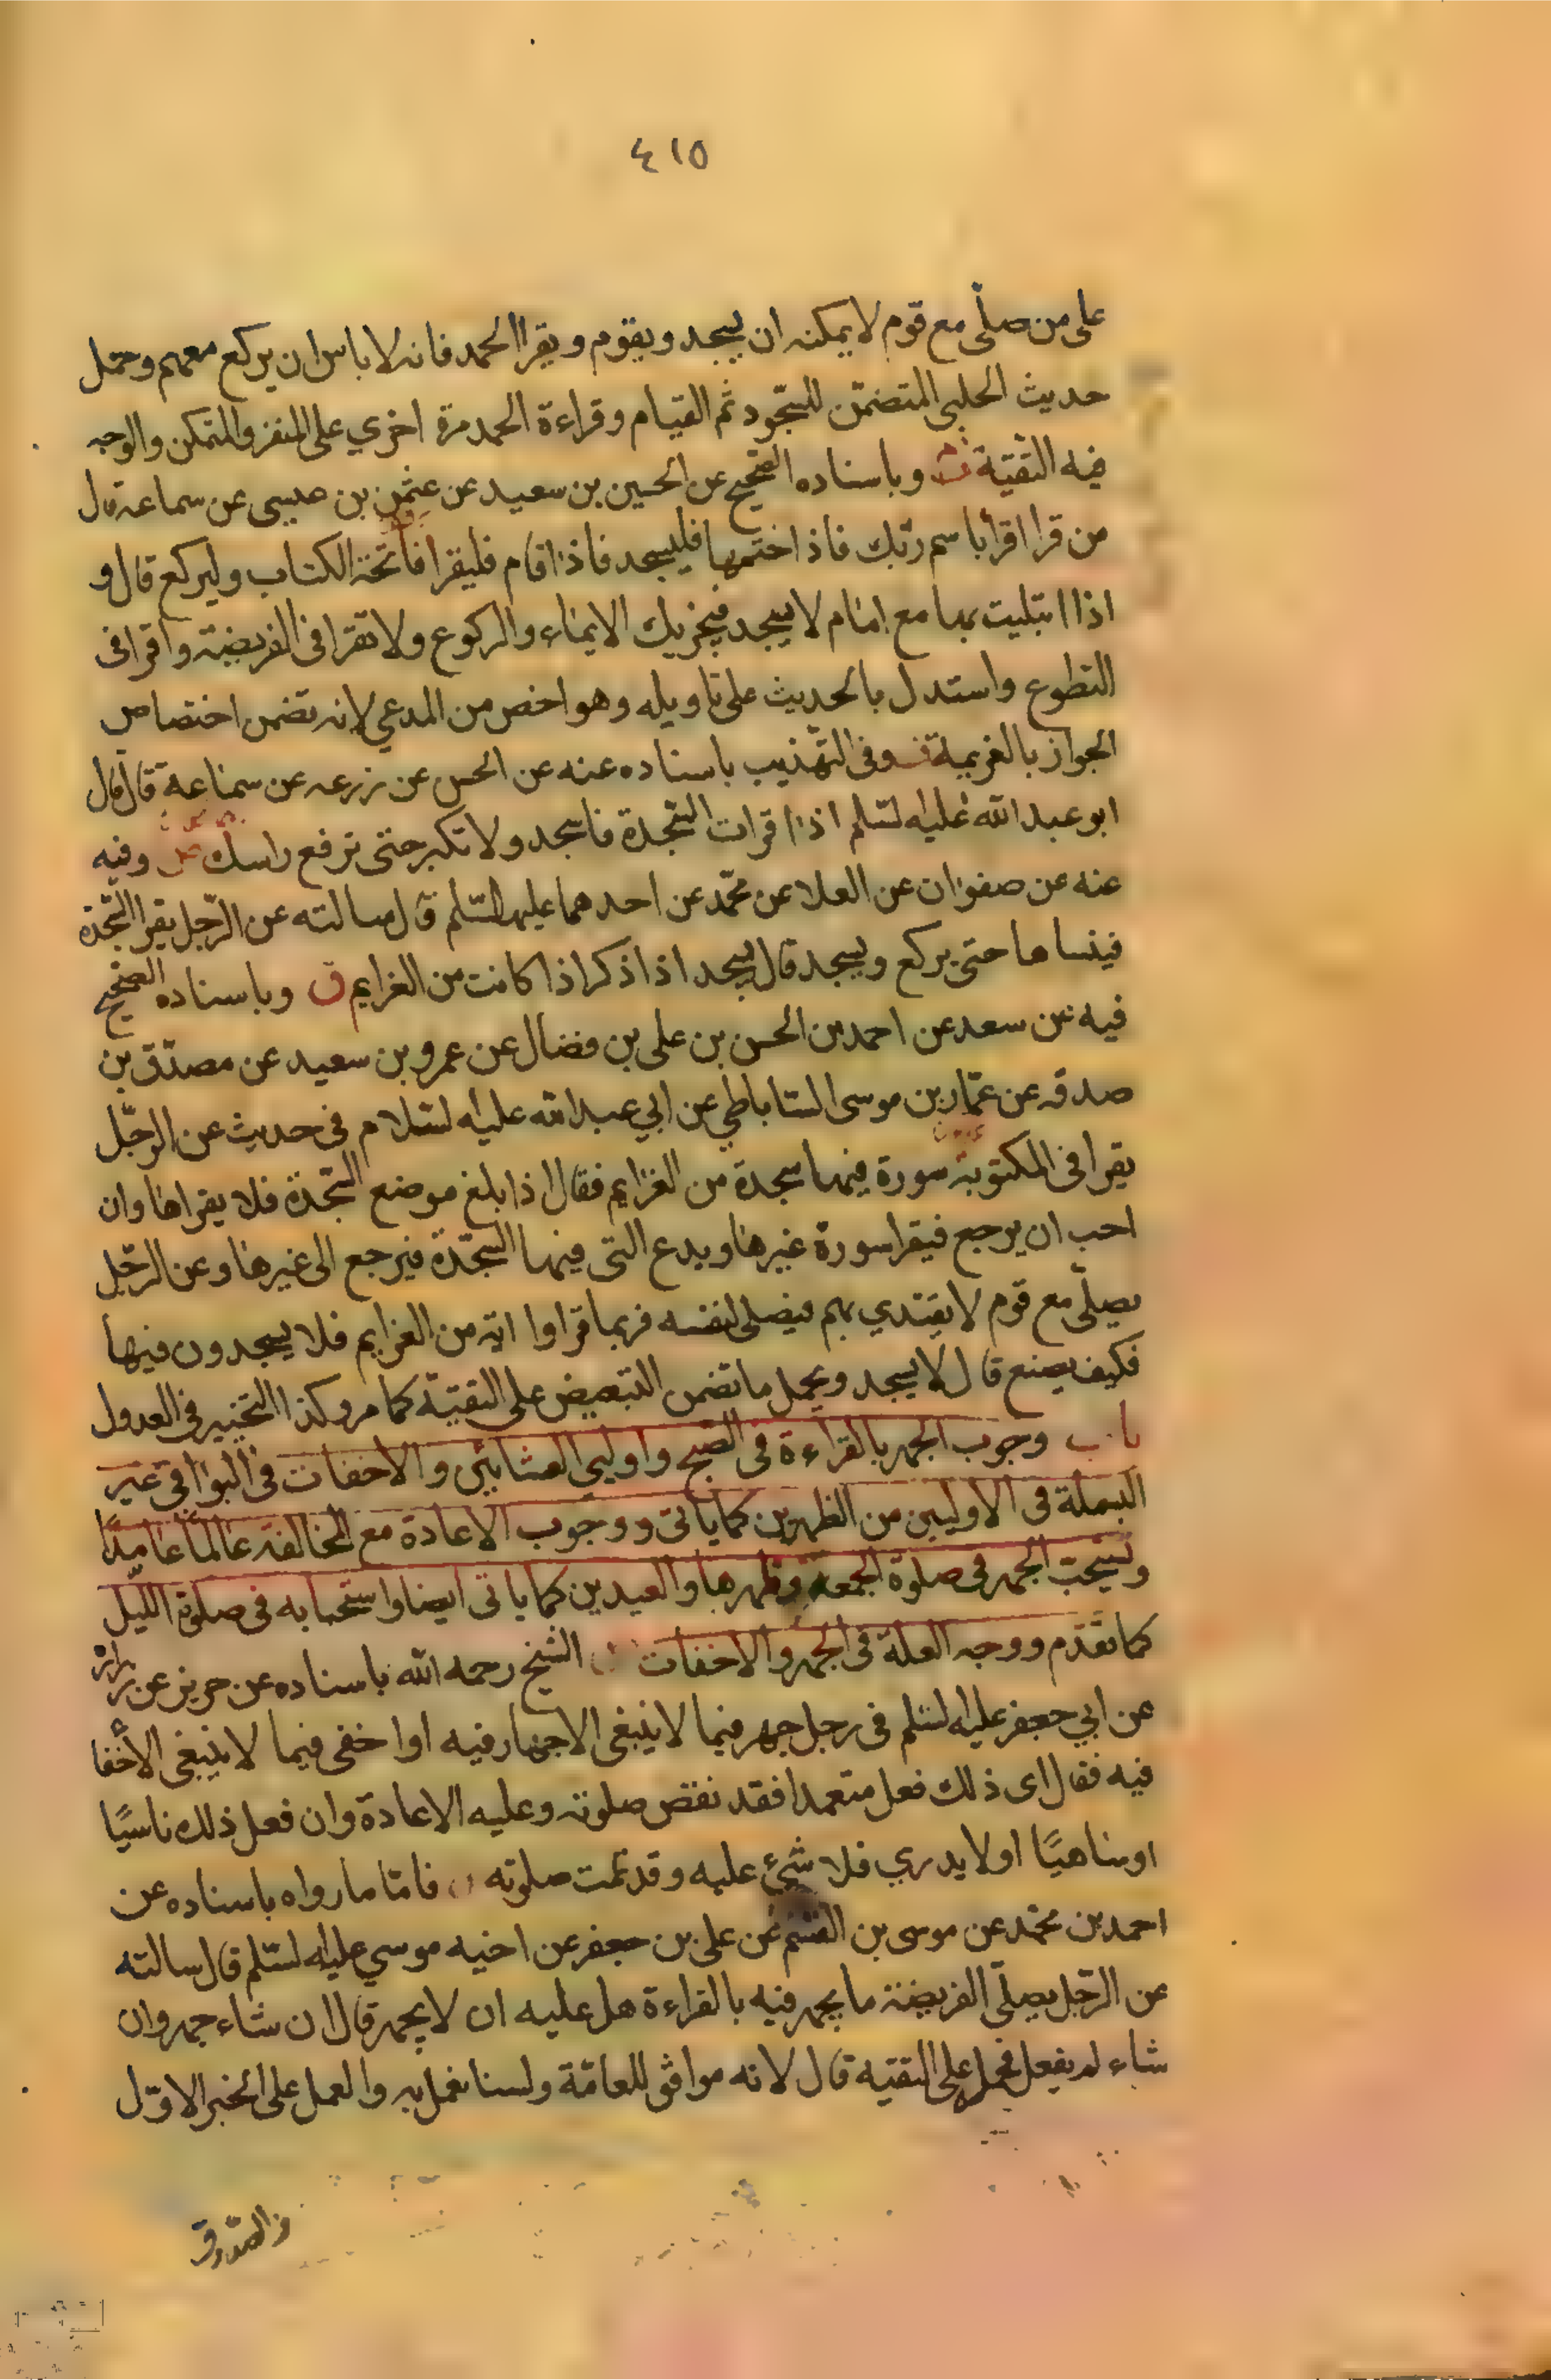 ٤١٥
على من صلّى مع قوم لا يمكنه ان يسجد ويقوم ويقرا الحمد فانه لا باس ان يركع معهم وحمل
حديث الحلبى المتضمّن للسّجود ثم القيام وقراءة الحمد مرة اخري على المنفرد المتمكن والوجه
فيه التقيّة ث وباسناده الصّحيح عن الحسين بن سعيد عن عثمن بن عيسى عن سماعة قال
من قرا اقرأ باسم ربّك فاذا ختمها فليسجد فاذا قام فليقرا فاتحة الكتاب وليركع قال و
اذا ابتليت بها مع امام لا يسجد فيجزيك الايماء والركوع ولا تقرا فى الفريضة واقرا فى
التطوع واستدل بالحديث على تاويله وهو اخص من المدعي لانه تضمن اختصاص
الجواز بالغريمة وفى التّهذيب باسناده عنه عن الحسن عن زرعه عن سماعة قال قال
ابو عبد الله عليه لسّلم اذا قرات السّجدة فاسجد ولا تكبر حتى ترفع راسك وفيه
عنه عن صفوان عن العلا عن محمّد عن احدهما عليهما لسّلم قال سالته عن الرّجل يقرا السّجدة
فينساها حتى يركع ويسجد قال يسجد اذا ذكر اذا كانت من الغرايم ق وباسناده الصّحيح
فيه عن سعد عن احمد بن الحسن بن على بن فضال عن عمرو بن سعيد عن مصدّق بن
صدقه عن عمّار بن موسى السّاباطي عن ابي عبد الله عليه لسّلام فى حديث عن الرّجل
يقرا فى المكتوبة سورة فيها سجدة من الغزايم فقال اذا بلغ موضع السّجدة فلا يقراها وان
احب ان يرجع فيقرا سورة غيرها ويدع التى فيها السّجدة فيرجع الى غيرها وعن الرّجل
يصلّى مع قوم لا يقتدي بهم فيصلى لنفسه فربما قراوا اية من العزايم فلا يسجدون فيها
فكيف يصنع قال لا يسجد ويحمل ما تضمن التبعيض على التقيّة كما مر وكذا التخيير فى العدول
باب وجوب الجهر بالقراءة فى الصّبح واوليى العشائين والاخفات فى البواقى غير
البسملة فى الاوليين من الظهرين كما ياتى ووجوب الاعادة مع المخالفة عالمًا عامدًا
ويستحبّ الجهر فى صلوة الجمعة وظهرها والعيدين كما ياتى ايضا واستحبابه فى صلوة اللّيل
كما تقدّم ووجه العلة فى الجهر والاخفات الشّيخ رحمه الله باسناده عن حريز عن زرارة
عن ابي جعفر عليه لسّلم فى رجل جهر فيما لا ينبغى الاجهار فيه او اخفى فيما لا ينبغى الأخفا
فيه فقال اى ذلك فعل متعمدا فقد نقض صلوته وعليه الاعادة وان فعل ذلك ناسيًا
او ساهيًا او لا يدري فلا شئ عليه وقد تمت صلوته فامّا ما رواه باسناده عن
احمد بن محمّد عن موسى بن القسم عن على بن جعفر عن اخيه موسي عليه لسّلم قال سالته
عن الرّجل يصلّى الفريضة ما يجهر فيه بالقراءة هل عليه ان لا يجهر قال ان شاء جهر وان
شاء لم يفعل فحمل على التقيّه قال لانه موافق للعامّة ولسنا نعمل به والعمل على الخبر الاوّل
والصّدوق